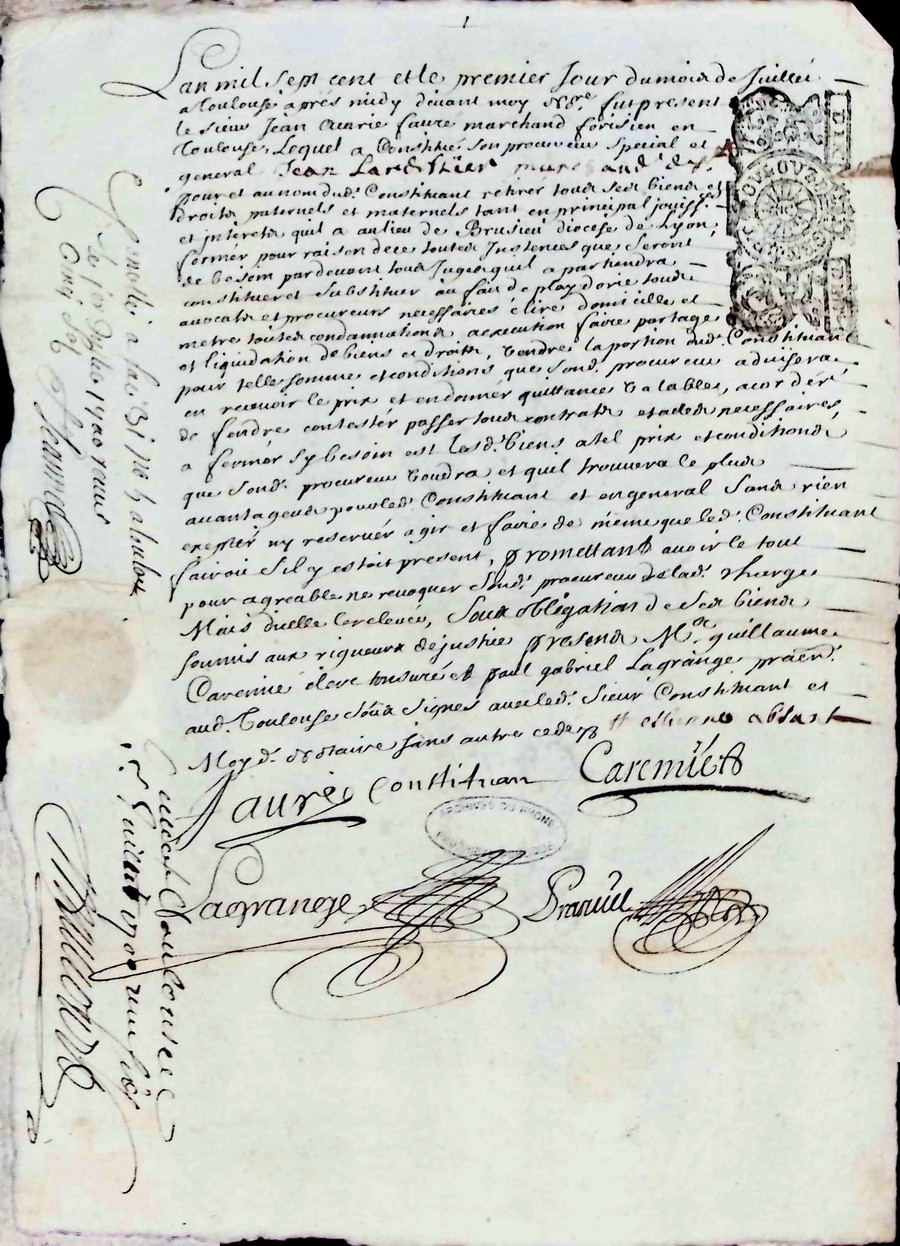 1
L'an mil sept cent et le premier Jour du mois de Juillet
a Toulouse aprés midy devant moy No.re fut present
le sieur Jean Marie faure marchand forisien en
Toulouse, Lequel a Constitué son procureur special et
general Jean Lardithier marchand de
pour et au nom dud. Constituant retirer tous ses biens et
droits paternels et maternels tant en principal jouiss.ces
et interets quil a au lieu de Brusieu diocese de Lyon,
former pour raison de ce toutes Instences que seront
de besoin par devant tous Juges quil apartiendra
constituer et substituer au fait de playdorie tous
avocats et procureurs necessaires elire domicille et
metre toutes condamnations a execution faire partage
et liquidation de biens et droits, vendre la portion dud. Constituant
pour telle somme et conditions que sond. procureur advisera
en recevoir le prix et en donner quittance valables, acorder
de fendre contester passer tous contrats et actes necessaires,
a fermer sy besoin est lesd. biens a tel prix et conditions
que sond. procureur voudra et quil trouvera le plus
avantageux pour led. Constituant et en general sans rien
excepter ny reserver agir et faire de même que led. Constituant
fairoit s'il y estoit present, promettant avoir le tout
pour agreable ne revoquer sond. procureur de lad. charge
Mais d'icelle le relever, sous obligation de ses biens
soumis aux rigueurs de justice presens M.r guillaume
Caremié clerc tonsuré et paul gabriel Lagrange praen.
aud. Toulouse sous signés avec led. sieur Constituant et
Moy d. Notaire sans autre ceder
faure Constituan
Caremié
ARCHIVES DU RHONE
Lagrange
Pratviel
Controllé a fac. 31 no. 4 a Toulouse
Le 1er Juillet 1700 receu
Cinq sols
TOULOUSE